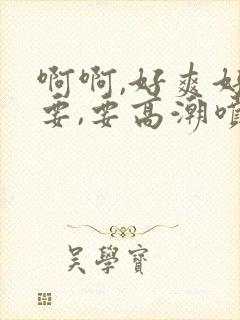 啊啊,好爽好
要,要高潮喷
吴學寳